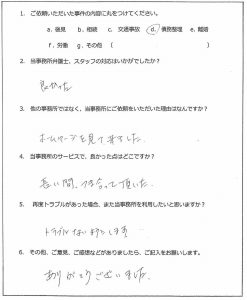 1. ご依頼いただいた事件の内容に丸をつけてください。
a. 後見 b. 相続 c. 交通事故 d. 債務整理 e. 離婚
f. 労働 g. その他 ( )
2. 当事務所弁護士、スタッフの対応はいかがでしたか?
良かった
3. 他の事務所ではなく、当事務所にご依頼をいただいた理由はなんですか?
ホームページを見て来ました。
4. 当事務所のサービスで、良かった点はどこですか?
長い間、つき合って頂いた。
5. 再度トラブルがあった場合、また当事務所を利用したいと思いますか?
トラブルないようにします
6. その他、ご意見、ご感想などがありましたら、ご記入をお願いします。
ありがとうございました。